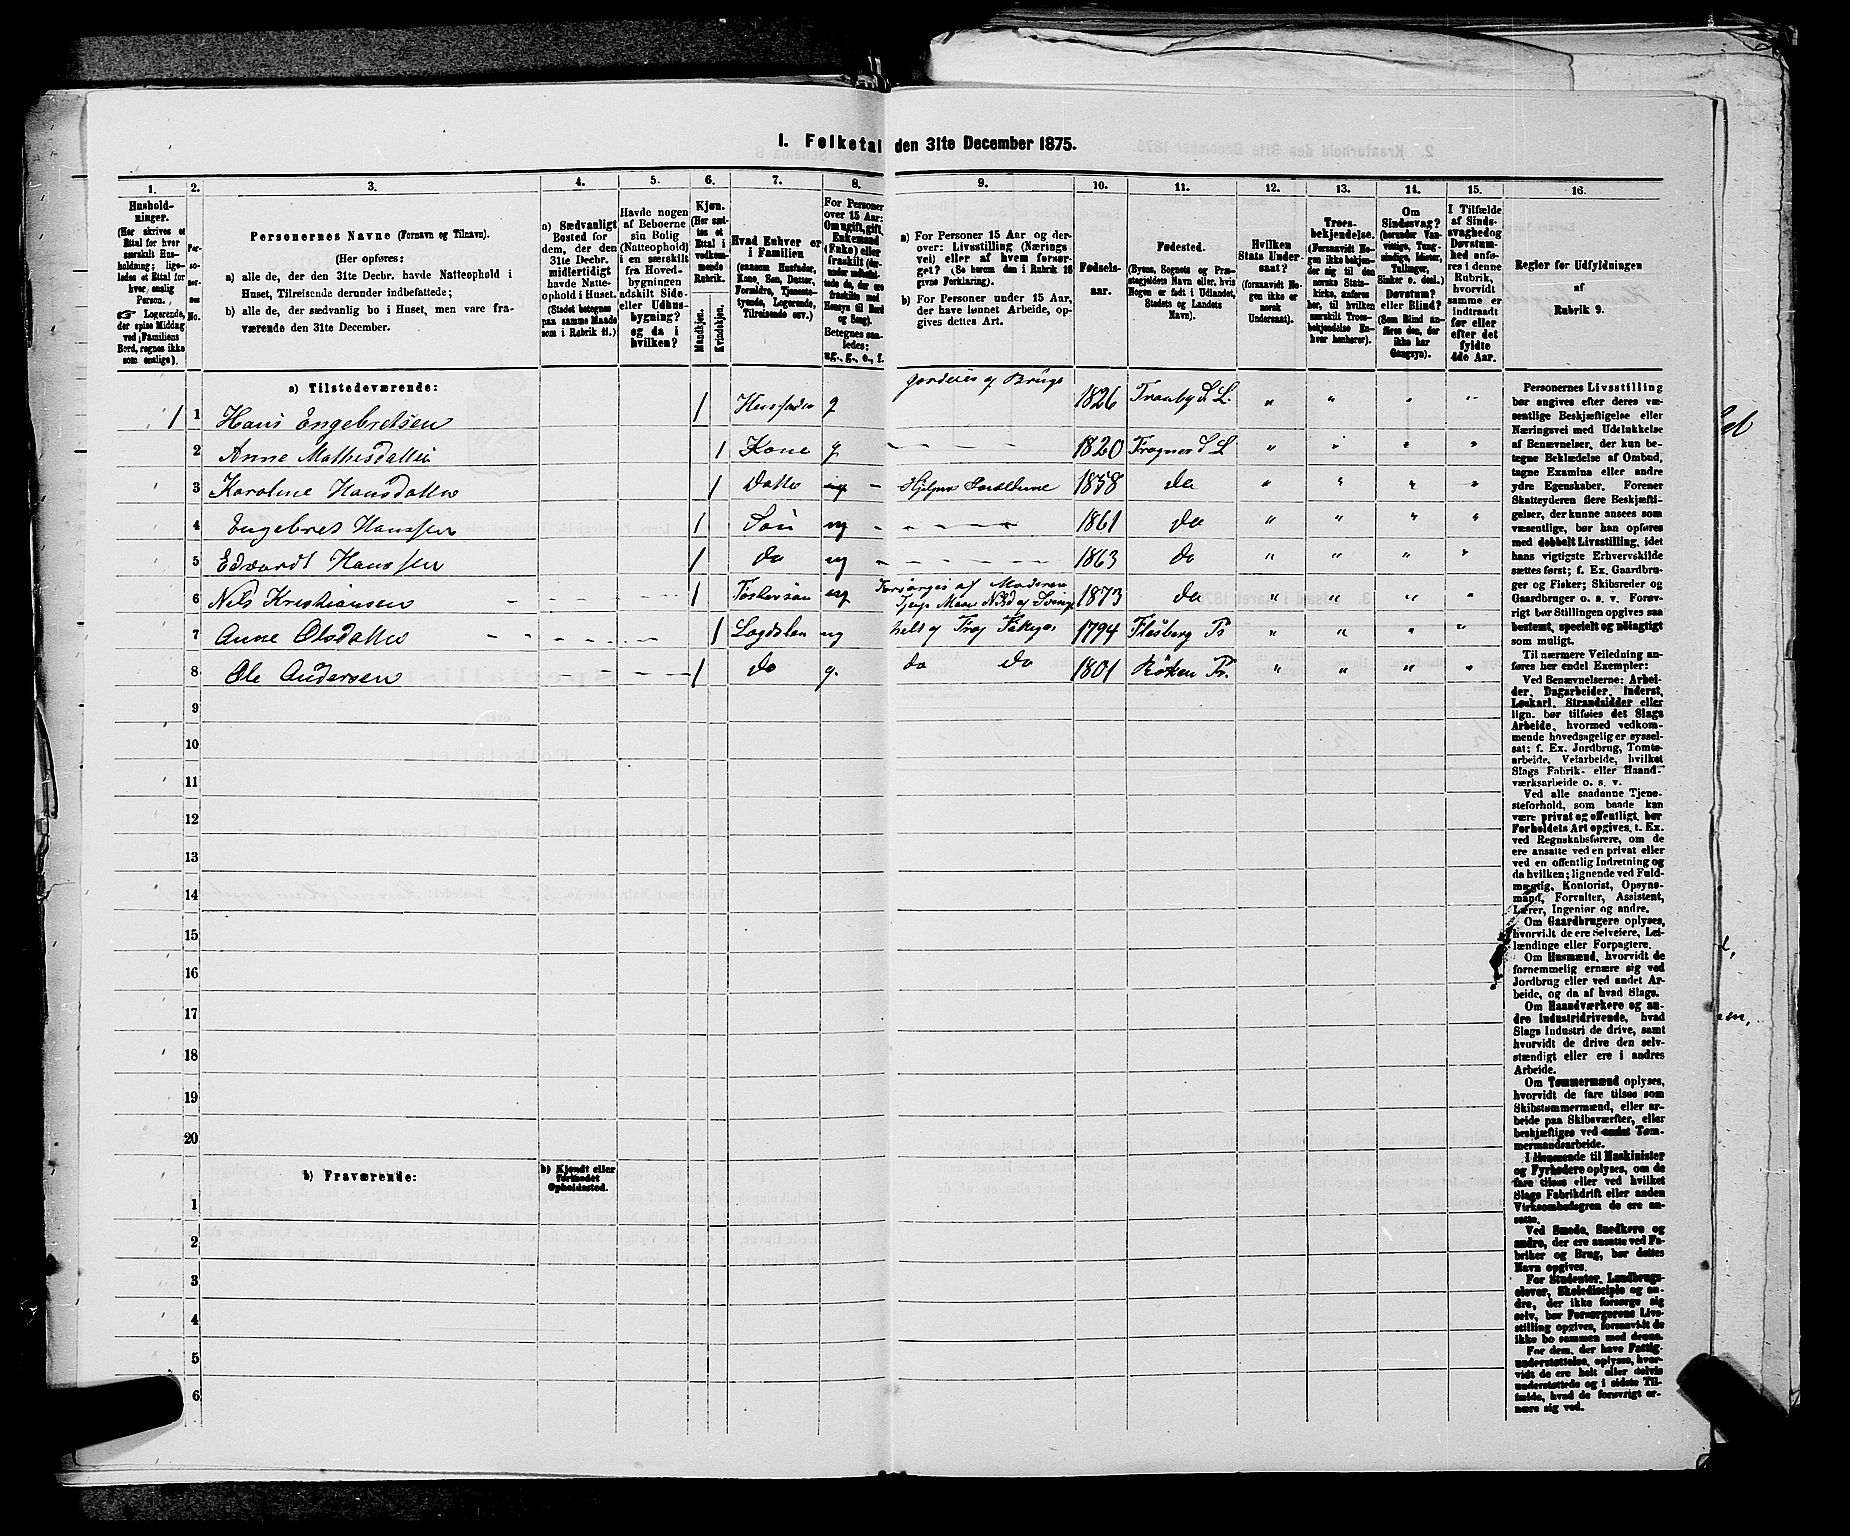 I. Folketal den 31te December 1875.
1. 2. 3. 4. 5. 6. 7. 8. 9. 10. 11. 12. 13. 14. 15. 16.
Hushold-
ninger.
(Her skrives et
Ettal for hver
særskilt Hus-
holdning; lige-
ledes et Ettal for
hver enslig
Person.
☞ Logerende,
der spise Middag
ved Familiens
Bord, regnes ikke
som enslige).
Per-
so-
ner-
nes
No.
Personernes Navne (Fornavn og Tilnavn).
(Her opføres:
a) alle de, der den 31te Decbr. havde Natteophold i
Huset, Tilreisende derunder indbefattede;
b) alle de, der sædvanlig bo i Huset, men vare fra-
værende den 31te December.
a) Sædvanligt
Bosted for
dem, der den
31te Decbr.
midlertidigt
havde Natte-
ophold i Huset.
(Stedet betegnes
paa samme Maade
som i Rubrik 11.)
Havde nogen
af Beboerne
sin Bolig
(Natteophold)
i en særskilt
fra Hoved-
bygningen
adskilt Side-
eller Udhus-
bygning?
og da i
hvilken?
Kjøn.
(Her sæt-
tes et
Ettal i
vedkom-
mende
Rubrik.
Mandkjøn.
Kvindekjøn.
Hvad Enhver er
i Familien
(saasom Husfader,
Kone, Søn, Datter,
Forældre, Tjeneste-
tyende, Logerende,
Tilreisende osv.)
For Personer
over 15 Aar:
Om ugift, gift,
Enkemand
(Enke) eller
fraskilt
Betegnes saa-
ledes:
ug., g., e., f.
a) For Personer 15 Aar og der-
over: Livsstilling (Nærings
vei) eller af hvem forsør-
get? (Se herom den i Rubrik 16
givne Forklaring).
b) For Personer under 15 Aar,
der have lønnet Arbeide, op-
gives dettes Art.
Fødsels-
aar.
Fødested.
(Byens, Sognets og Præ-
stegjeldets Navn eller, hvis
Nogen er født i Udlandet,
Stedets og Landets
Navn).
Hvilken
Stats Under-
saat?
(forsaavidt No-
gen ikke er
norsk
Undersaat).
Troes-
bekjendelse.
(Forsaavidt No-
gen ikke bekjen-
der sig til den
norske Stats-
kirke, anføres
her, til hvilken
særskilt Troes-
bekjendelse En-
hver henhører).
Om
Sindssvag?
(herunder Van-
vittige, Tung-
sindige, Idioter,
Tullinger,
Sinker o. desl.)
Døvstum?
eller Blind?
(Som Blind an-
føres den, der
ikke har
Gangsyn).
I Tilfælde
af Sinds-
svaghed og
Døvstum-
hed anfø-
res i denne
Rubrik,
hvorvidt
samme er
indtraadt
før eller
efter det
fyldte
4de Aar.
Regler for Udfyldningen
af
Rubrik 9.
a) Tilstedeværende:
1 1 Hans Engebretsen 1 Husfader g Gardeier og Brug 1826 Tranby L L " " " "
2 Anne Mathisdatter 1 Kone g - - - - 1820 Fragner L L " " " "
3 Karoline Hansdatter 1 Datter ug - Hjelper Foreldrene 1858 do " " " "
4 Engebret Hanssen 1 Søn ug - - - - 1861 do " " " "
5 Edvardt Hanssen 1 do ug - - - - 1863 do " " " "
6 Nels Kristiansen - - - - 1 Fostersøn ug Forsørges af Moderen
Tjen 1873 do " " " "
7 Anne Olsdatter - - - - 1 Lægdslem ug helt af 1794 Flesberg Pr " " " "
8 Ole Andersen - - - 1 do g. do do 1801 Røken Pr. " " " "
9
10
11
12
13
14
15
16
17
18
19
20
b) Fraværende:
b) Kjendt eller
formodet
Opholdssted.
1
2
3
4
5
6
Personernes Livsstilling
bør angives efter deres væ-
sentlige Beskjæftigelse eller
Næringsvei med Udelukkelse
af Benævnelser, der kun be-
tegne Beklædelse af Ombud,
tagne Examina eller andre
ydre Egenskaber. Forener
Skatteyderen flere Beskjæfti-
gelser, der kunne ansees som
væsentlige, bør han opføres
med dobbelt Livsstilling, idet
hans vigtigste Erhvervskilde
sættes først; f. Ex. Gaardbru-
ger og Fisker; Skibsreder og
Gaardbruger o. s. v. Forøv-
rigt bør Stillingen opgives saa
bestemt, specielt og nøiagtigt
som muligt.
Til nærmere Veiledning an-
føres her endel Exempler:
Ved Benævnelserne: Arbei-
der, Dagarbeider, Inderst,
Løskarl, Strandsidder eller
lign. bør tilføies det Slags
Arbeide, hvormed vedkom-
mende hovedsagelig er syssel-
sat; f. Ex. Jordbrug, Tomte-
arbeide, Veiarbeide, hvilket
Slags Fabrik- eller Haand-
værksarbeide o. s. v.
Ved alle saadanne Tjene-
steforhold, som baade kan
være privat og offentligt, bør
Forholdets Art opgives, t. Ex.
ved Regnskabsførere, om de
ere ansatte ved en privat eller
ved en offentlig Indretning og
da hvilken; lignende ved Fuld-
mægtig, Kontorist, Opsyns-
mand, Forvalter, Assistent,
Lærer, Ingeniør og andre.
Om Gaardbrugere oplyses,
hvorvidt de ere Selveiere, Lei-
lændinge eller Forpagtere.
Om Husmænd, hvorvidt de
fornemmelig ernære sig ved
Jordbrug eller ved andet Ar-
beide, og da af hvad Slags.
Om Haandværkere og an-
dre Industridrivende, hvad
Slags Industri de drive, samt
hvorvidt de drive den selv-
stændigt eller ere i andres
Arbeide.
Om Tømmermænd oplyses,
hvorvidt de fare tilsøs som
Skibstømmermænd, eller ar-
beide paa Skibsværfter, eller
beskjæftiges ved andet Tøm-
mermandsarbeide.
I Henseende til Maskinister
og Fyrbødere oplyses, om de
fare tilsøs eller ved hvilket
Slags Fabrikdrift eller anden
Virksomhedsgren de ere an-
satte.
Ved Smede, Snedkere og
andre, der ere ansatte ved Fa-
briker og Brug, bør dettes
Navn opgives.
For Studenter, Landbrugs-
elever, Skoledisciple og an-
dre, der ikke forsørge sig
selv, bør Forsørgerens Livs-
stilling opgives, forsaavidt de
ikke bo sammen med denne.
For dem, der have Fattig-
understøttelse, oplyses, hvor-
vidt de ere helt eller delvis
understøttede og i sidste Til-
fælde, hvad de forøvrigt er-
nære sig ved.